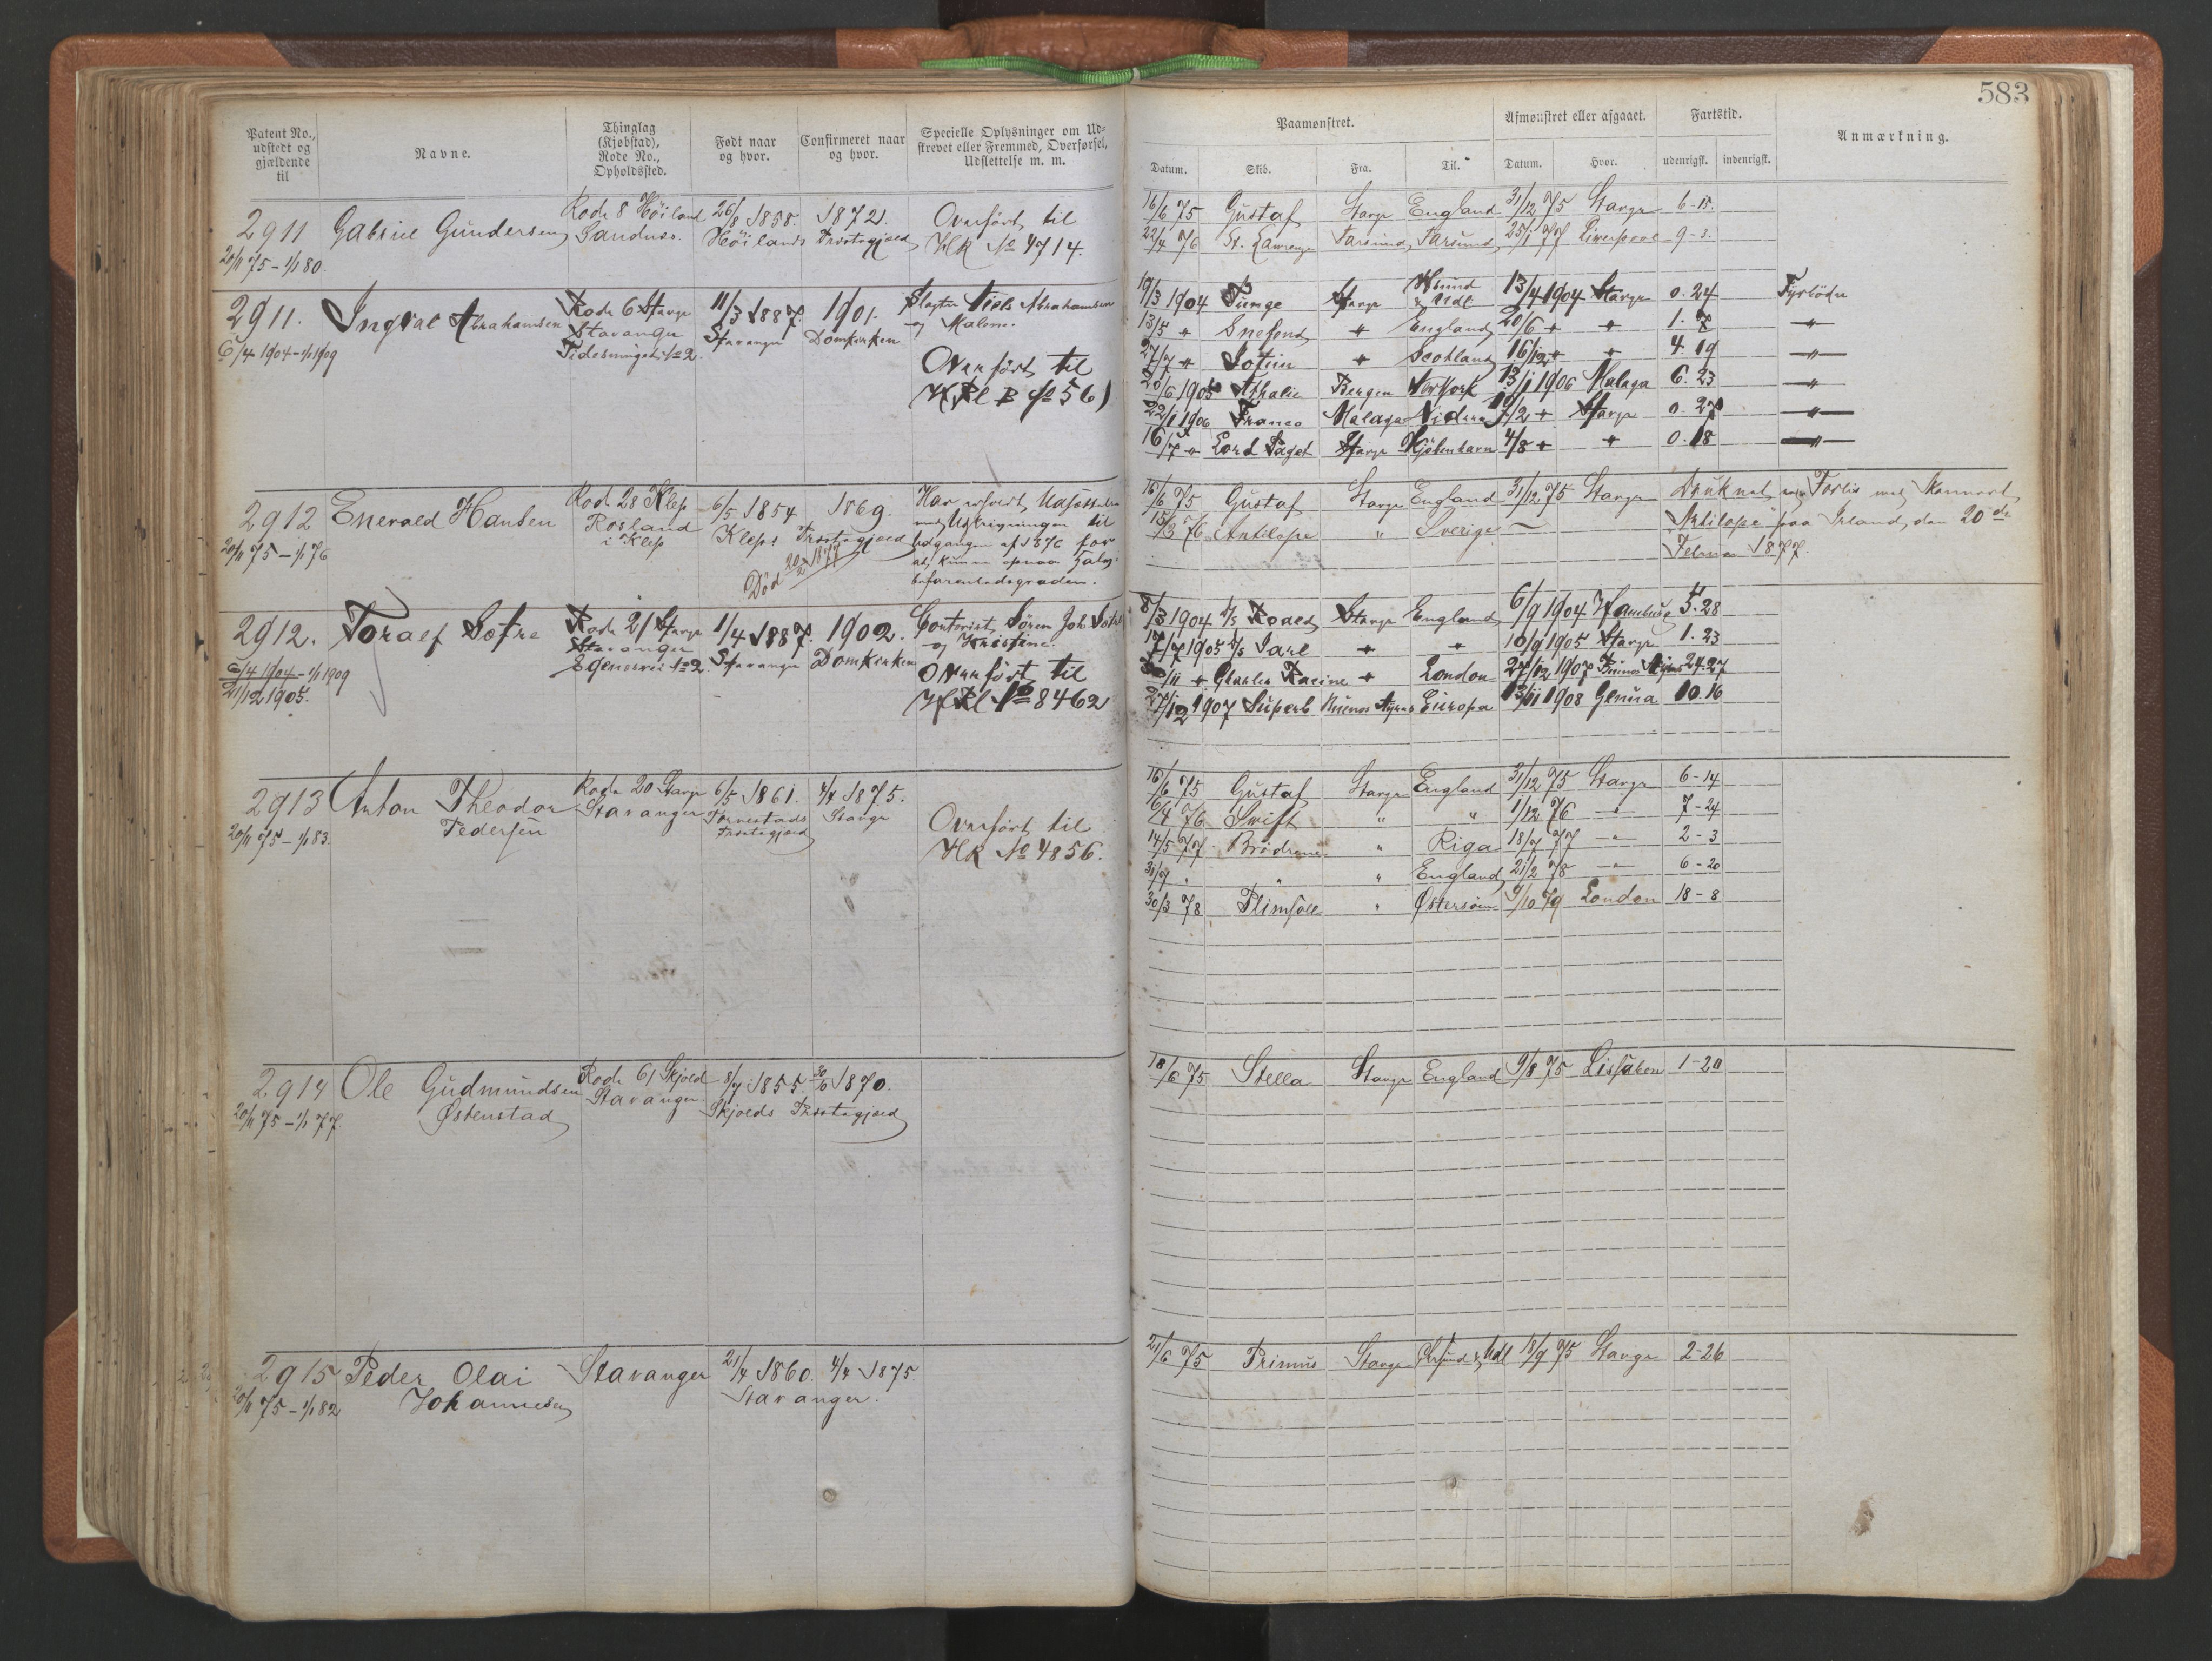 583
Patent No., udstedt og gjældende til
Navne.
Thinglag (Kjøbstad), Rode No., Opholdssted.
Født naar og hvor.
Confirmeret naar og hvor.
Specielle Oplysninger om Udskrevet eller Fremmed, Overførsel, Udslettelse m. m.
Paamønstret.
Afmønstret eller afgaaet.
Fartstid.
Anmærkning.
Datum. Skib. Fra. Til. Datum. Hvor. udenrigsk. indenrigsk.
2911 Gabriel Gundersen Rode 8 Höiland 26/8 1858. 1872. Overført til
Sandnes. Höilands Præstegjæld HR No 4714.
20/11 75 - 1/1 80.
16/6 75 Gustaf Stavgr England 31/12 75 Stavgr 6-15.
22/4 76 St. Lawrence Farsund Farsund 25/1 77 Liverpool 9-3.
2911. Ingval Abrahamsen Rode 6 Stavgr 11/3 1887. 1901. Slagter Niels Abrahamsen
Stavanger Stavanger Domkirken og Malene.
6/4 1904 - 1/1 1909
No 2. Overført til
HRl B No 561
19/3 1904 Tunge Stavgr & Udl 13/4 1904 Stavgr 0. 24 Fyrbøder
13/5 " Snefond " England 20/6 " " 1. 7 "
27/7 " " Scotland 16/12 " " 4. 19 "
20/6 1905 Athalie Bergen NewYork 13/1 1906 Malaga 6. 23 "
22/1 1906 Franco Malaga /2 " Stavgr 0. 27 "
16/7 " Lord Paget Stavgr Kjøbenhavn 4/8 " " 0. 18 "
2912 Enevald Hansen Rode 28 Klep 6/5 1854 1869. Har erholdt Udsættelse
Rosland Kleps Præstegjæld med Udskrivningen til
20/11 75 - 1/1 76 i Klep Udgangen af 1876 for
Død 20/2 1877 at kunne opnaa
befarenhedsgraden.
16/6 75 Gustaf Stavgr England 31/12 75 Stavgr Druknet ved Forlis med Skonnert
15/3 76 Antilope " Sverige - Antilope paa Irland den 20de
Februar 1877.
2912. Toralf Sætre Rode 21 Stavgr 1/4 1887. 1902. Contorist Sören Joh Sætre
Stavanger Stavanger Domkirken og Kristine.
6/4 1904 - 1/1 1909
21/12 1905.
No 2 Overført til
HRl No 8462
8/3 1904 Stavgr England 6/9 1904 Hamburg 5. 28
17/7 1905 D/S Jarl " " 10/9 1905 Stavgr 1. 23
/11 " Charles Racine " London 27/12 1907 Buenos Ayres 24. 27
27/12 1907 Superb Buenos Ayres Europa 13/11 1908 Genua 10. 16
2913 Anton Theodor Rode 20 Stavgr 6/5 1861. 4/4 1875.
Pedersen Stavanger Torvestads Stavgr
20/11 75 - 1/1 83. Præstegjæld Overført til
HR No 4856.
16/6 75 Gustaf Stavgr England 31/12 75 Stavgr 6-14
6/4 76 Swift " " 1/12 76 " 7-24
14/5 77 Brödrene " Riga 18/7 77 " 2-3
31/7 " " " England 21/2 78 " 6-20
30/3 78 Plimsoll " Østersøen 9/10 79 London 18-8
2914 Ole Gudmundsen Rode 61 Skjold 8/7 1855 30/6 1870.
Østenstad Stavanger. Skjolds Præstegjæld
20/11 75 - 1/1 77
18/6 75 Stella Stavgr England 9/8 75 Lissabon 1-20
2915 Peder Olai Stavanger 21/4 1860. 4/4 1875
Johannesen Stavanger.
20/11 75 - 1/1 82
21/6 75 Primus Stavgr & Udl 13/9 75 Stavgr 2-26